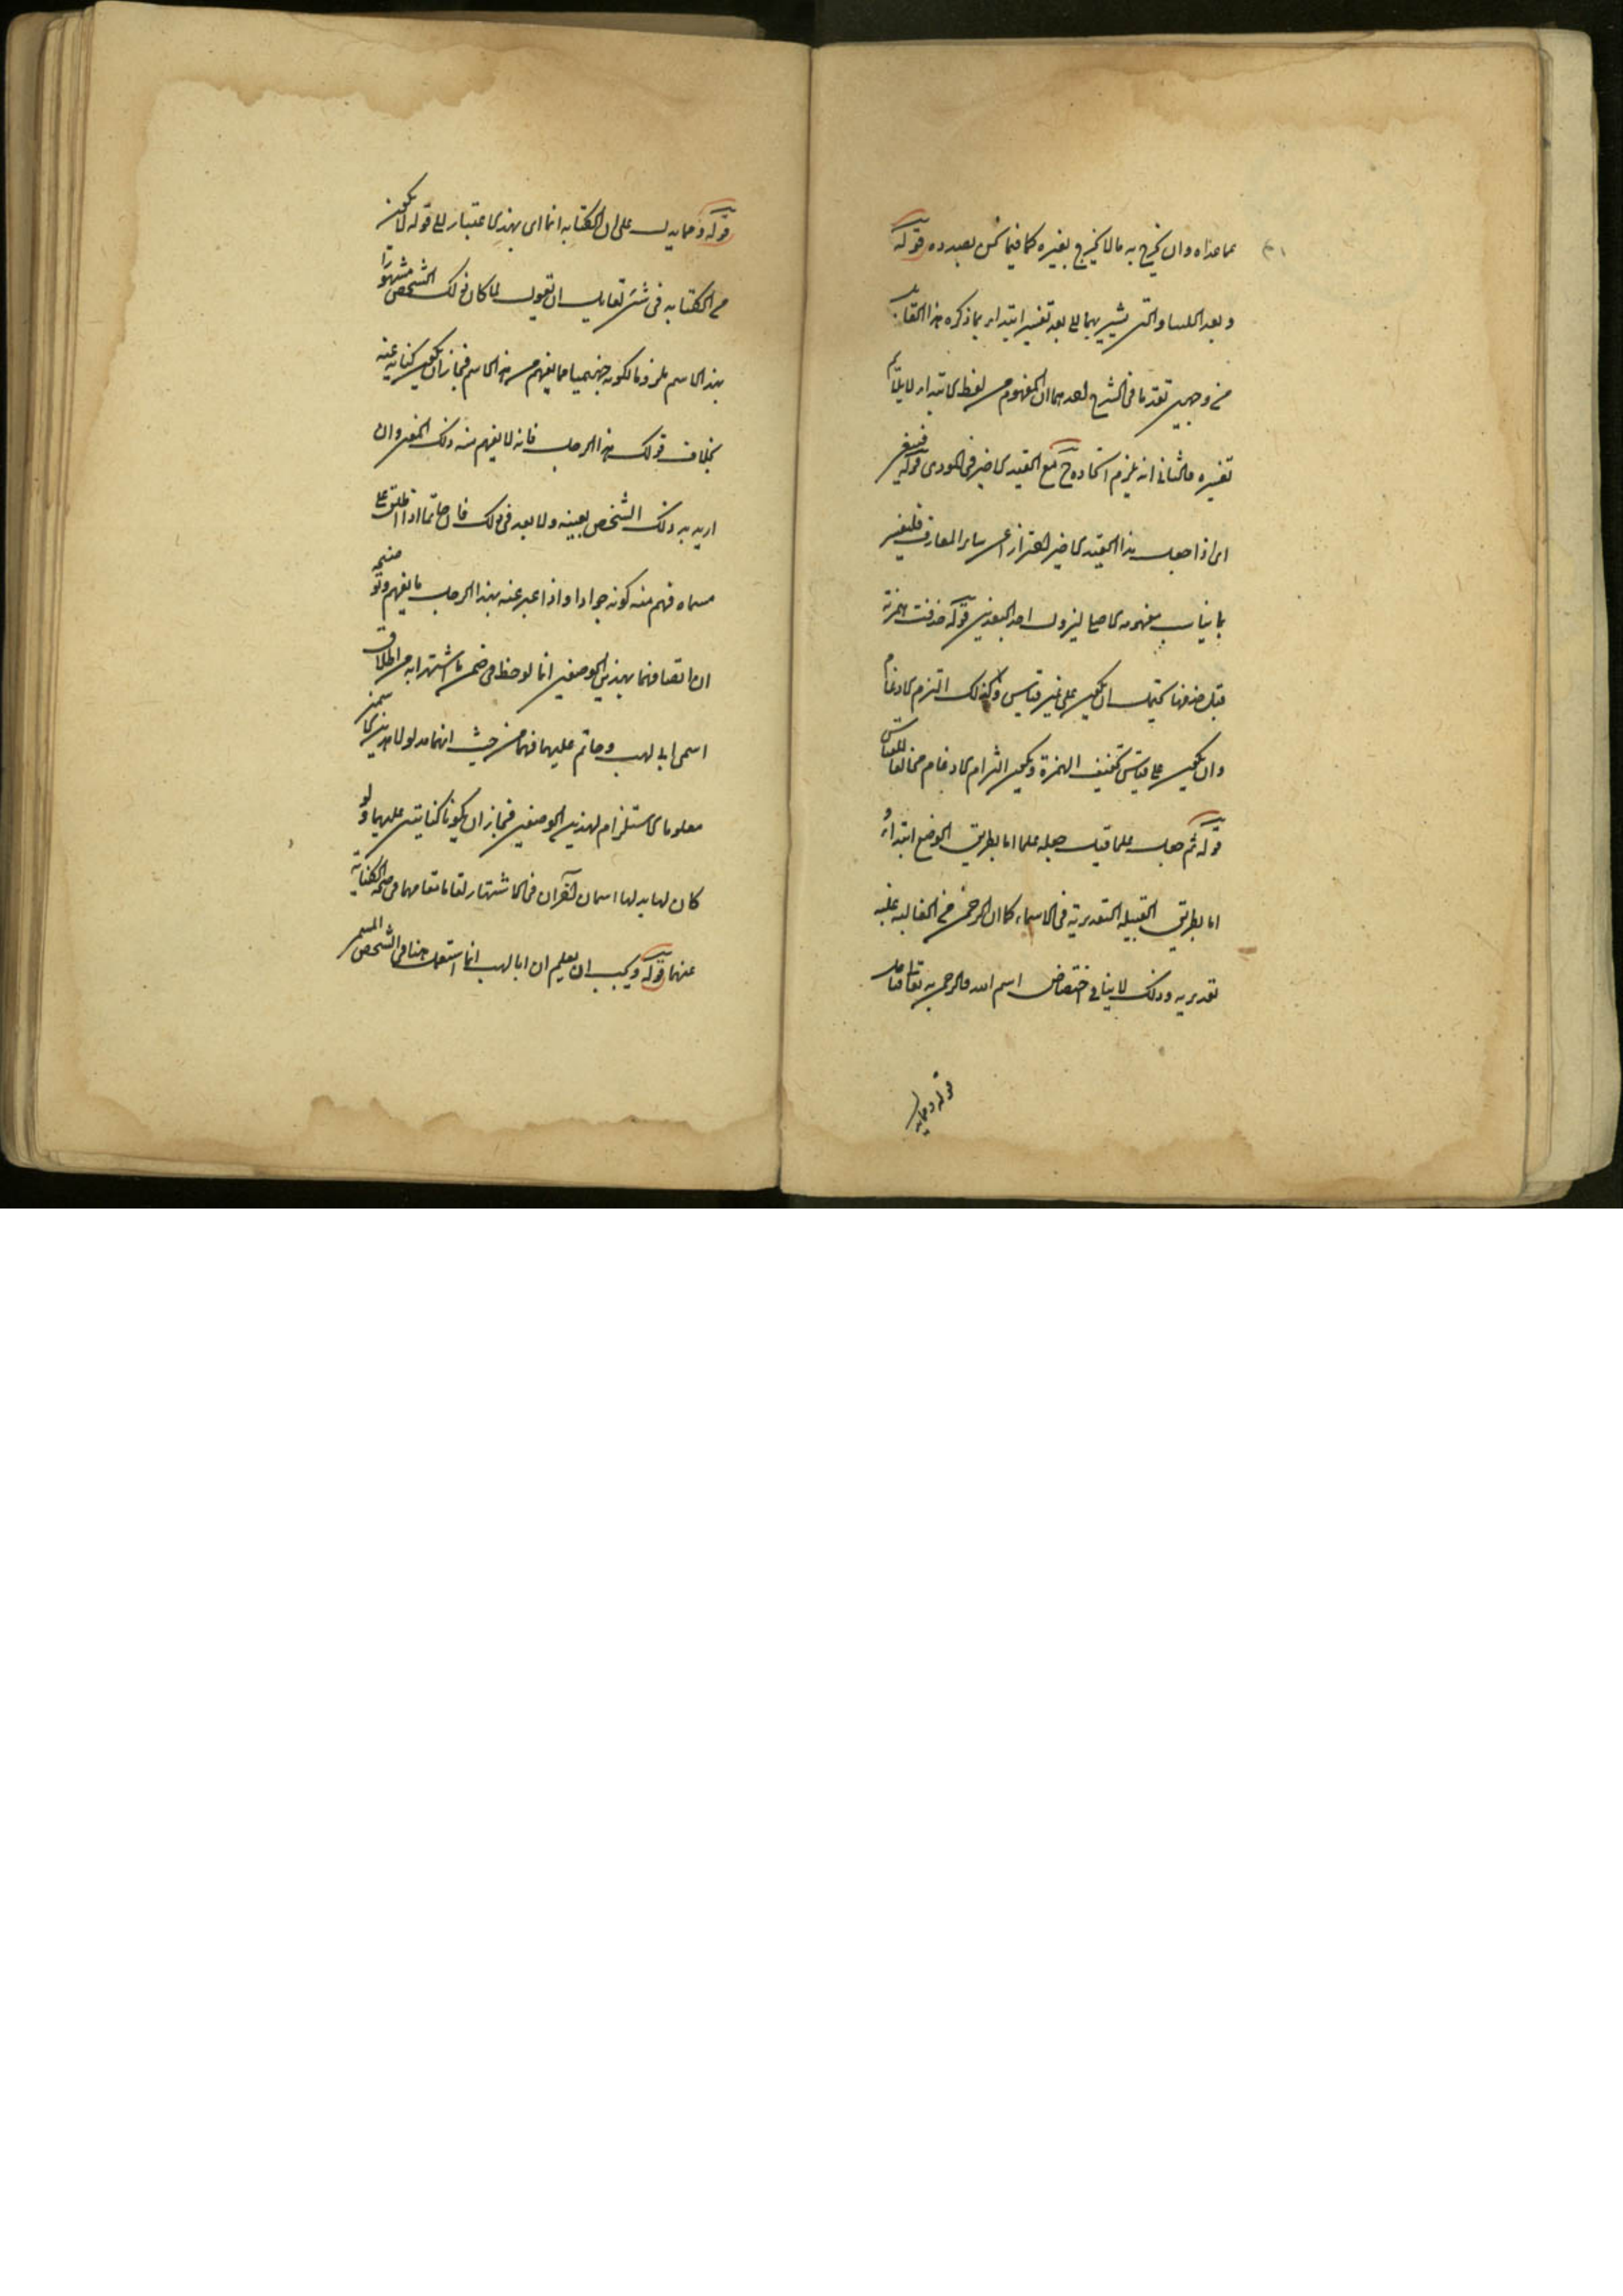 عما عداه وان يخرج به ما لا يخرج بغيره كما فيما نحن بصدده قوله
وبعد اللتيا والتي يشير بهما الى بعد تفسير ابتداء بما ذكره هذا القائل
من وجهين تقدما في الشرح احدهما ان المفهوم من لفظ الابتداء لا يلائم
تفسيره والثاني انه يلزم اتحاده ح مع القيد الاخير في المودى قوله فينبغي
اي اذا جعل هذا القيد الاخير احترازا عن ساير المعارف فليفسر
بما يناسب مفهومه الاصلي ليزول احد البعدين قوله حذفت همزته
قبل حذفها يحتمل ان يكون على غير قياس وكذلك التزم الادغام
وان يكون على قياس تخفيف الهمزة ويكون التزام الادغام مخالفا للقياس
قوله ثم جعل علما قيل جعله علما اما بطريق الوضع ابتداء و
اما بطريق الغلبة التقديرية في الاسماء كما ان الرحمن من الغالبة غلبة
تقديرية وذلك لا ينافي اختصاص اسم الله والرحمن به تعالى
قوله ومما يدل
قوله ومما يدل على ان الكناية انما اي بهذا الاعتبار الى قوله لا يكون
من الكناية في شئ لقايل ان يقول لما كان ذلك الشخص مشهورا
بهذا الاسم ملزوما لكونه جهنميا مما يفهم من هذا الاسم فجاز ان يكون كناية عنه
بخلاف قولك هذا الرجل فانه لا يفهم منه ذلك المعنى وان
اريد به ذلك الشخص بعينه ولا بعد في ذلك فان حاتما اذا اطلق على
مسماه فهم منه كونه جوادا واذا عبر عنه بهذا الرجل ما يفهم
ان اتصافهما بهذين الوصفين انما لوحظ في ضمن ما اشتهرا به من اطلاق
اسمي ابي لهب وحاتم عليهما فهما من حيث انهما مدلولا هذين الاسمين
معلوما الاستلزام لهذين الوصفين فجاز ان يكونا كنايتين عليهما ولو
كان لهما بدلهما اسمان آخران في الاشتهار لقاما مقامهما في صحة الكناية
عنهما قوله ويجب ان يعلم ان ابا لهب انما استعمل هنا في الشخص المسمى